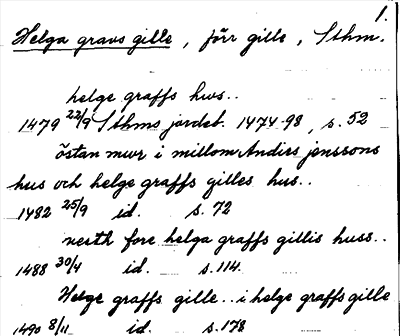 1.
Helga gravs gille, förr gille, Sthm.
helge graffs hws..
1479 22/9 Sthms jordeb. 1474-98, s. 52
östan mwr i millom Andirs jenssons
hus och helge graffs gilles hus..
1482 25/9 id. s. 72
nesth fore helga graffs gillis huss..
1488 30/4 id. s. 114.
Helge graffs gille.. i helge graffs gille
1490 8/11 id. s. 178